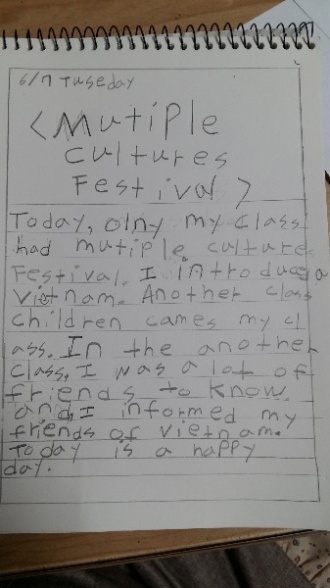 6/7 Tuseday
<Mutiple
cultures
Festival>
Today, olny my class
had mutiple culture
Festival. I introduced a
Vietnam. Another class
children cames my cl
ass. In the another
class. I was a lot of
friends to know.
and I informed my
friends of Vietnam.
Today is a happy
day.